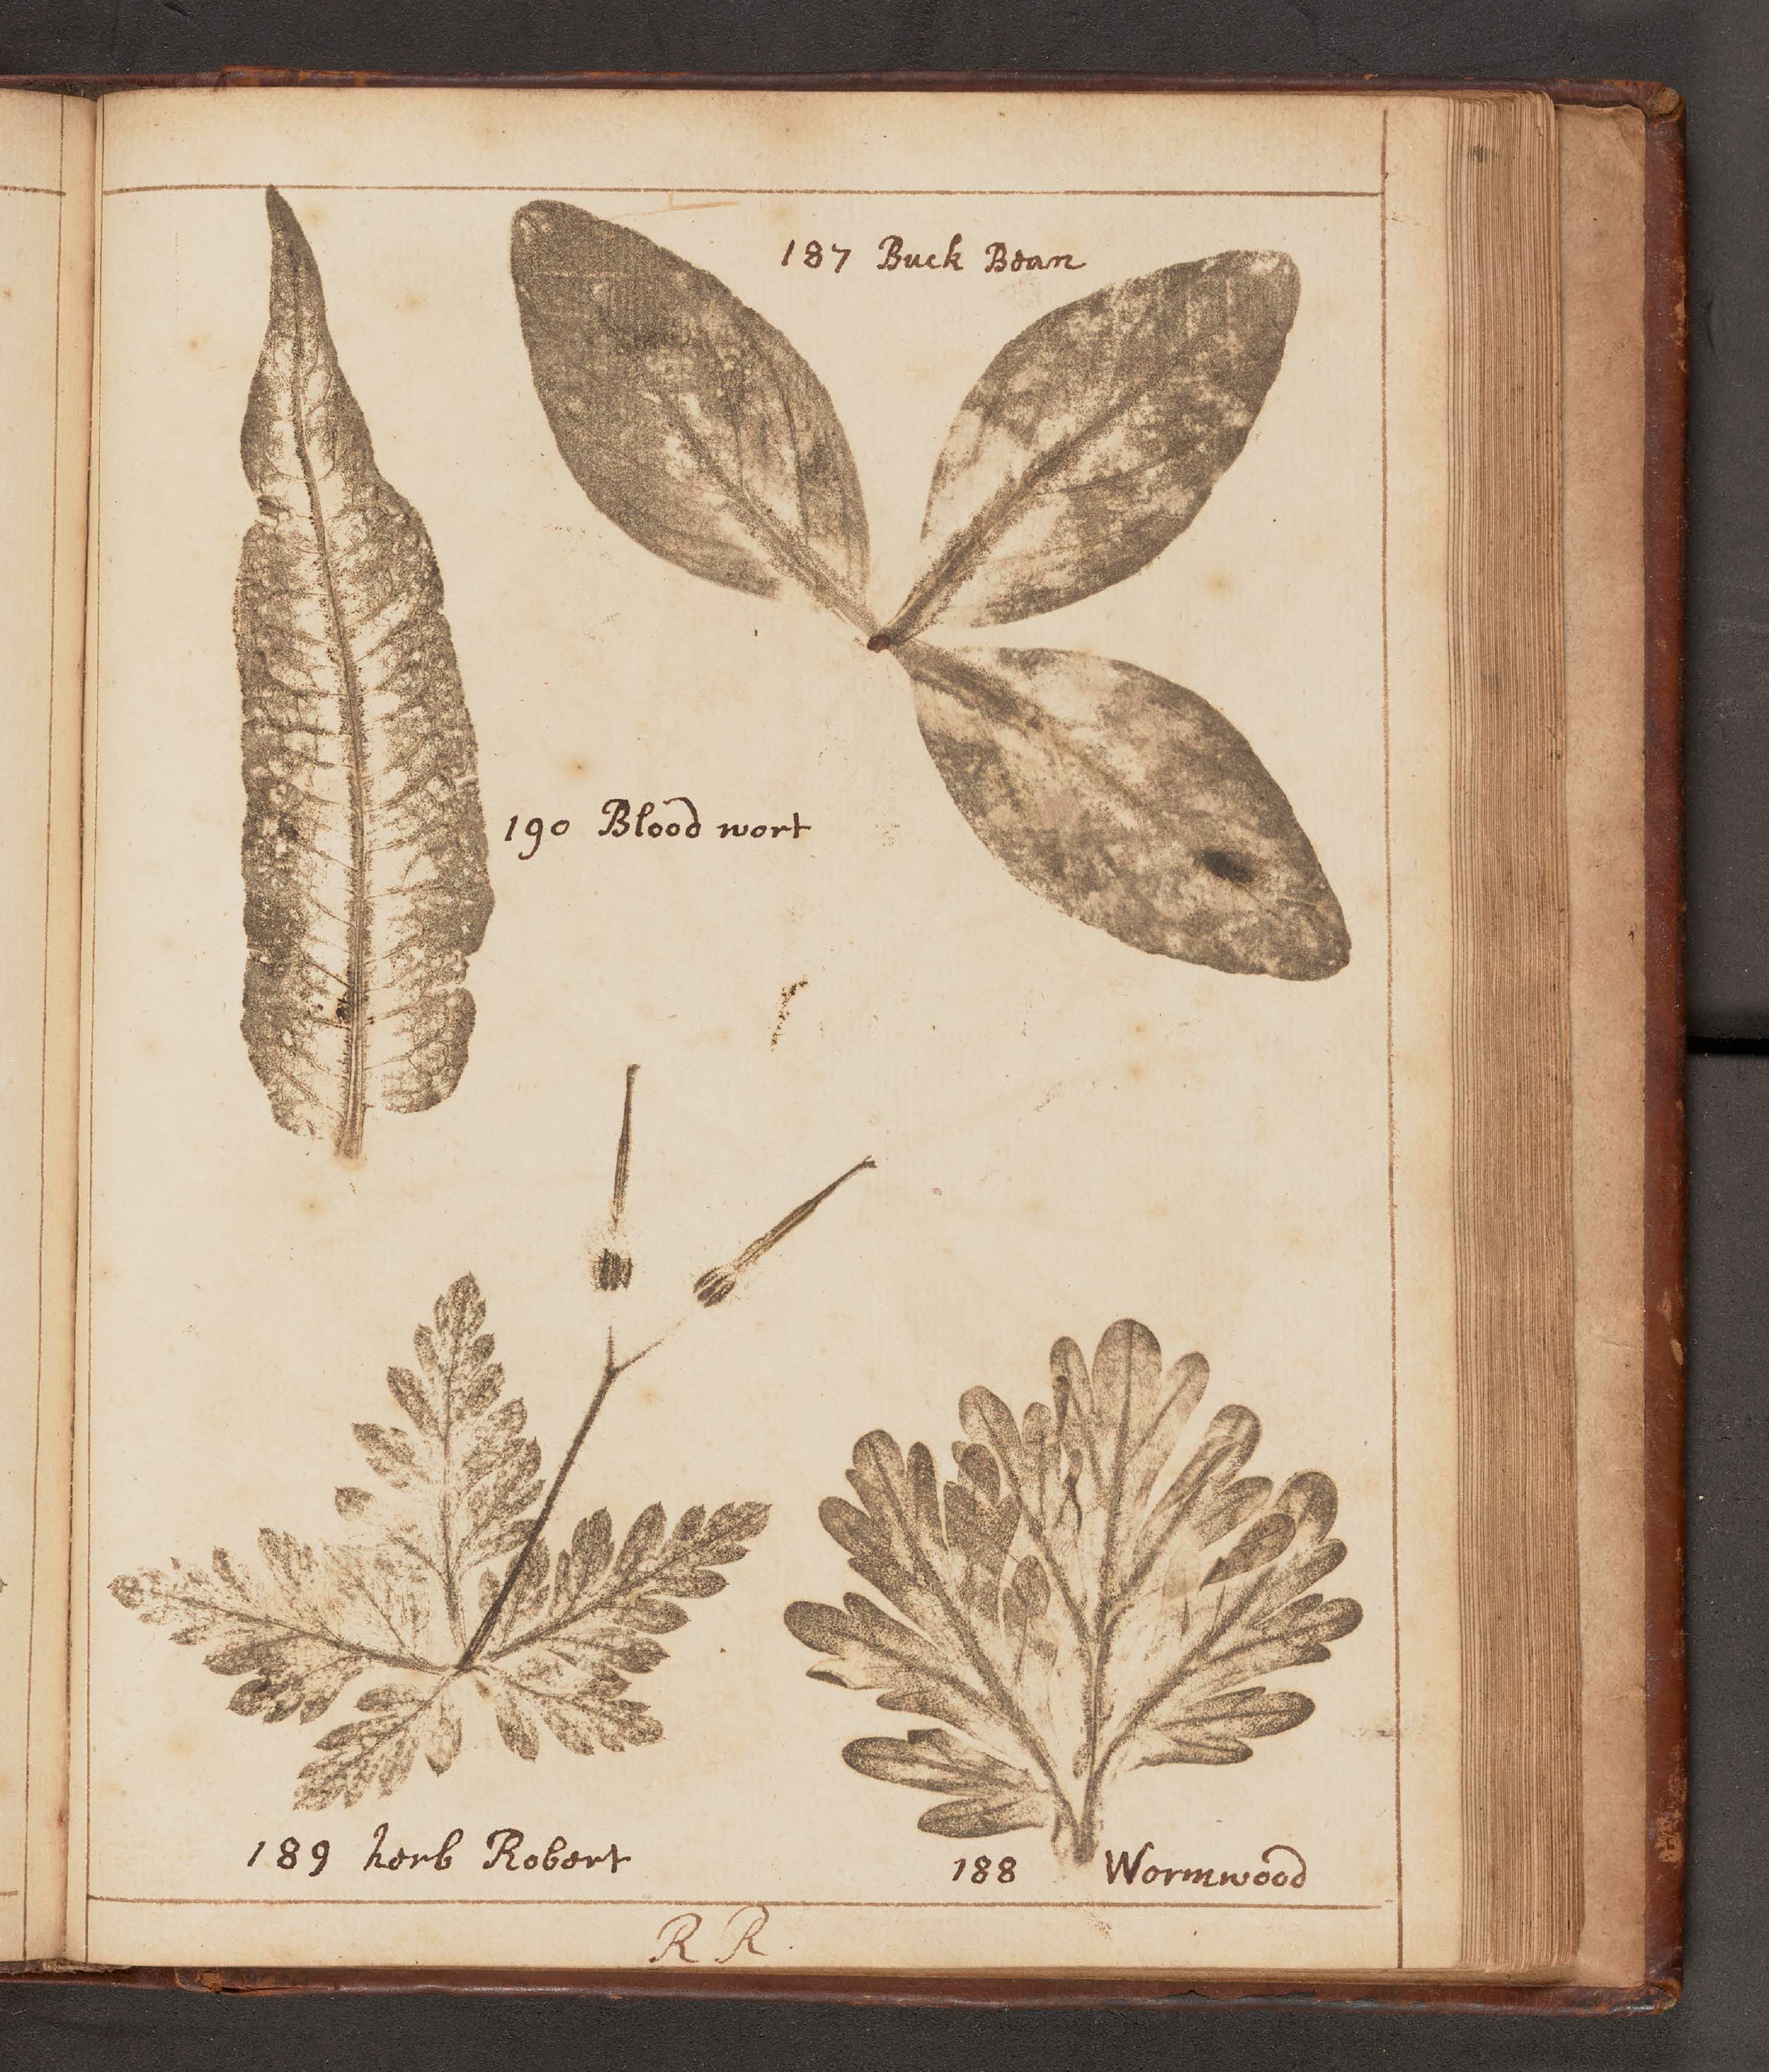 187 Buck Bean
190 Blood wort
189 herb Robert
188 Wormwood
R R.